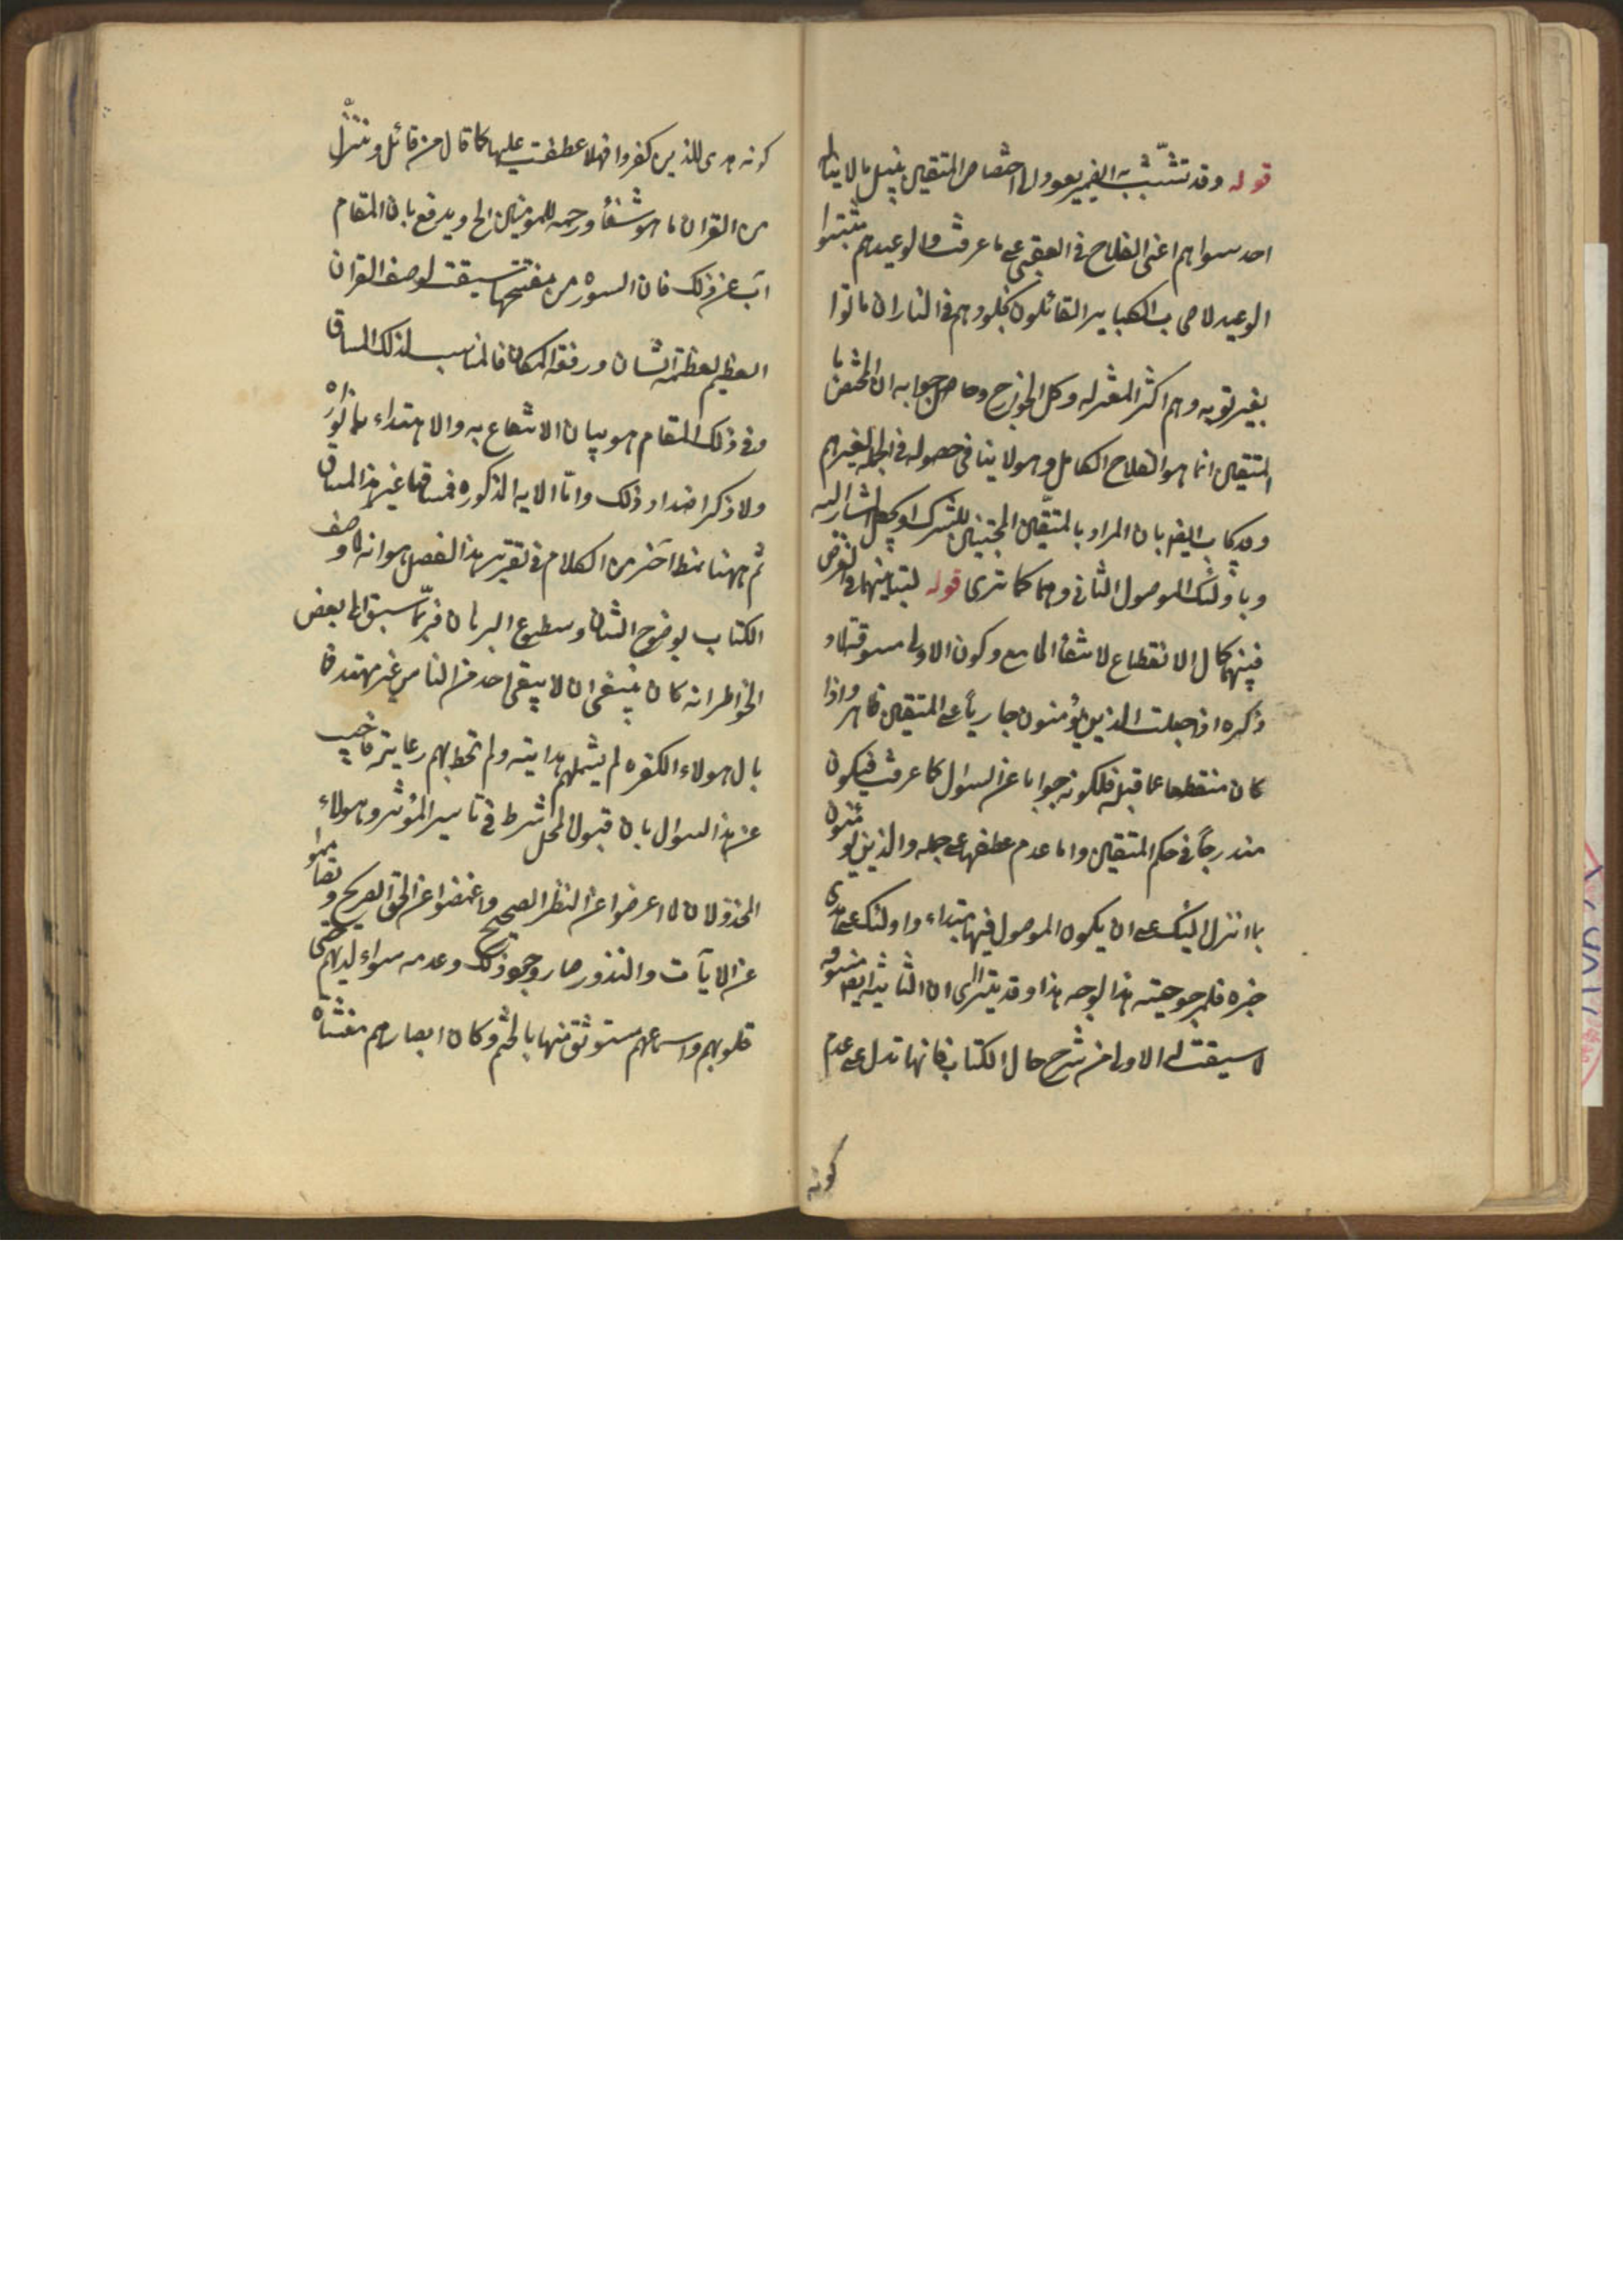 قوله وقد تشبث به الضمير يعود الى اختصاص المتقين بنيل ما لا يناله
احد سواهم اعنى الفلاح فى العقبى على ما عرفت والوعيديه هم مثبتوا
الوعيد لاصحاب الكباير القائلون بخلودهم فى النار ان ماتوا
بغير توبه وهم اكثر المعتزله وكل الخوارج وحاصل جوابه ان المختص با
المتقين انما هو الفلاح الكامل وهو لا ينافى حصوله فى الجمله لغيرهم
وقد يجاب ايضا بان المراد بالمتقين المجتنبين للشرك او يجعل المشار اليه
وباولئك الموصول الثانى وهما كما ترى قوله لتباينهما فى الغرض
فبينهما كمال الانقطاع لانتفاء الجامع وكون الاولى مسوقة لما
ذكره اذ جعلت الذين يؤمنون جاريا على المتقين ظاهر واذا
كان منقطعا عما قبله فلكونه جوابا عن السوال كما عرفت فيكون
مندرجا فى حكم المتقين واما عدم عطفها على جمله والذين يومنون
بما انزل اليك على ان يكون الموصول فيها مبتداء واولئك على هدى
خبره فلمرجوحيته هذا الوجه هذا وقد يترااى ان الثانيه ايضا مسوقه
لما سيقت له الاولى من شرح حال الكتاب فانها تدل على عدم
كونه
كونه هدى للذين كفروا فهلا عطفت عليها كما قال من قائل وننزل
من القران ما هو شفاء ورحمه للمومنين الخ ويدفع بان المقام
آب عن ذلك فان السوره من مفتتحها سيقت لوصف القران
العظيم لعظمة الشان ورفعة المكان فالمناسب لذلك المساق
وفى ذلك المقام هو بيان الانتفاع به والاهتداء بانواره
ولا ذكر اضداد ذلك واما الايه المذكوره فمساقها غير هذا المساق
ثم ههنا نمط آخر من الكلام فى تقرير هذا الفصل هو انه لما وصف
الكتاب بوضوح الشان وسطوع البرهان فربما سبق الى بعض
الخواطر انه كان ينبغى ان لا يبقى احد من الناس غير مهتد فما
بال هولاء الكفره لم يشملهم هدايته ولم تحط بهم رعايته فاجيب
عن هذا السوال بان قبول المحل شرط فى تاثير المؤثر وهولاء
المخذولان لما اعرضوا عن النظر الصحيح واغمضوا عن الحق الصريح وتعاموا
عن الايآت والنذور صار وجود ذلك وعدمه سواء لديهم حتى
قلوبهم واسماعهم مستوثق منها بالختم وكان ابصارهم مغشاه